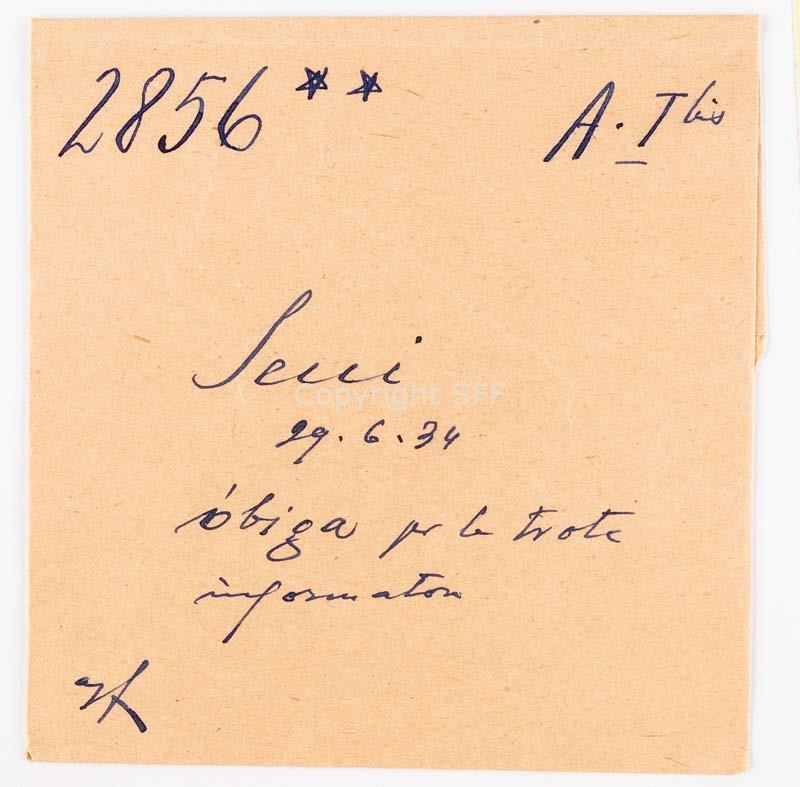 2856 ** A. I bis
Seui
29.6.34
óbiga per le trote
informatori
Copyright SFF